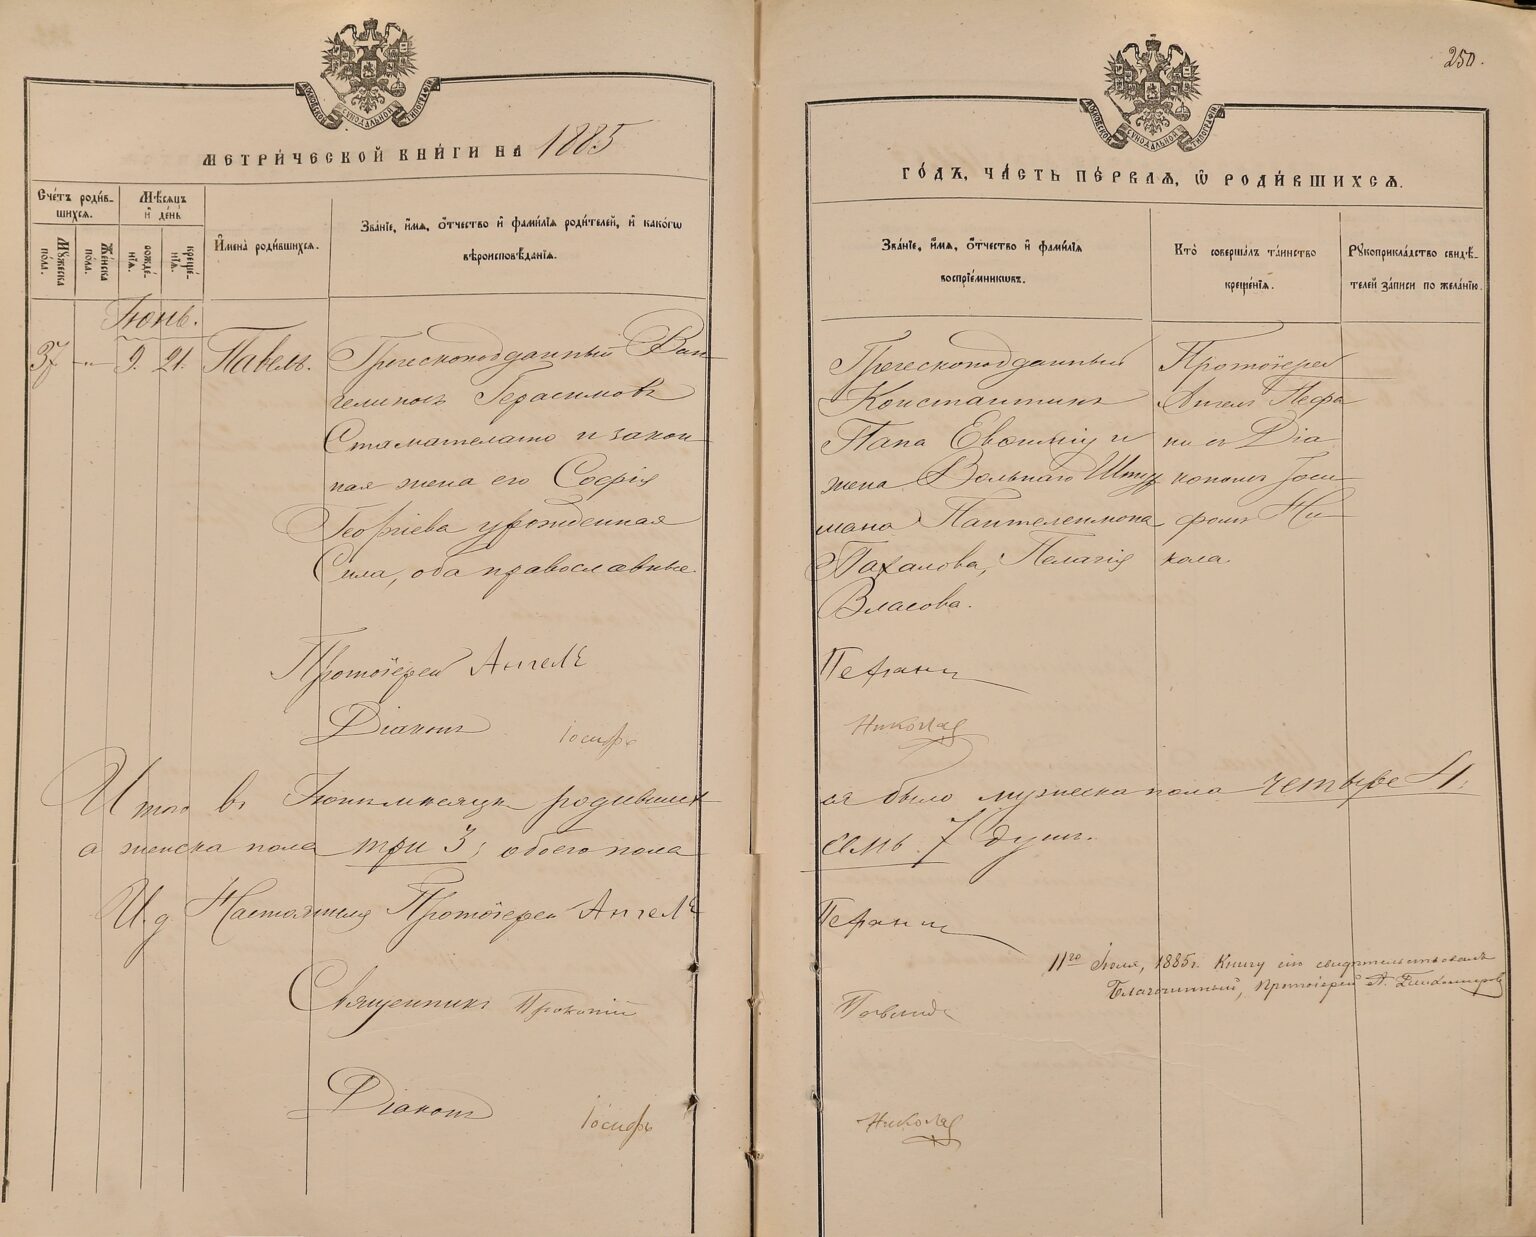 250.
МОСКОВСКОЙ СѴНОДАЛЬНОЙ ТИПОГРАФІИ
МЕТРИЧЕСКОЙ КНИГИ НА 1885
Счетъ родив-
шихся.
Мѣсяцъ
и день
Мужеска
пола.
Женска
пола.
рожде-
нія.
креще-
нія.
Имена родившихся.
Званіе, имя, отчество и фамилія родителей, и какогѡ
вѣроисповѣданія.
Іюнь.
3 " 9. 21. Павелъ.
Греческоподданный Ван-
гелиносъ Герасимовъ
Стамателато и закон-
ная жена его Софія
Георгіева урожденная
Сила, оба православные.
Протоіерей Ангелъ
Діаконъ Іосифъ
Итого въ Іюнѣ мѣсяцѣ родивших
а женска пола три 3; обоего пола
И. д. Настоятеля Протоіерей Ангелъ
Священникъ Прокопій
Діаконъ Іосифъ
МОСКОВСКОЙ СѴНОДАЛЬНОЙ ТИПОГРАФІИ
ГОДЪ, ЧАСТЬ ПЕРВАЯ, Ѡ РОДИВШИХСЯ.
Званіе, имя, отчество и фамилія
воспріемникѡвъ.
Кто совершалъ таинство
крещенія.
Рукоприкладство свидѣ-
телей записи по желанію.
Греческоподданный
Константинъ
Папа Евѳиміу и
жена Вольнаго Штур-
мана Пантелеимона
Пахалова, Пелагія
Власова.
Протоіерей
Ангелъ Пефа
ни съ Діа
кономъ Іоси
фомъ Ни-
кола.
Пефани
Николая
ся было мужеска пола четыре 4;
семь 7 душъ.
Пефани
11го Іюля, 1885г. Книгу сію свидѣтельствовалъ
Благочинный, Протоіерей А.
Николая